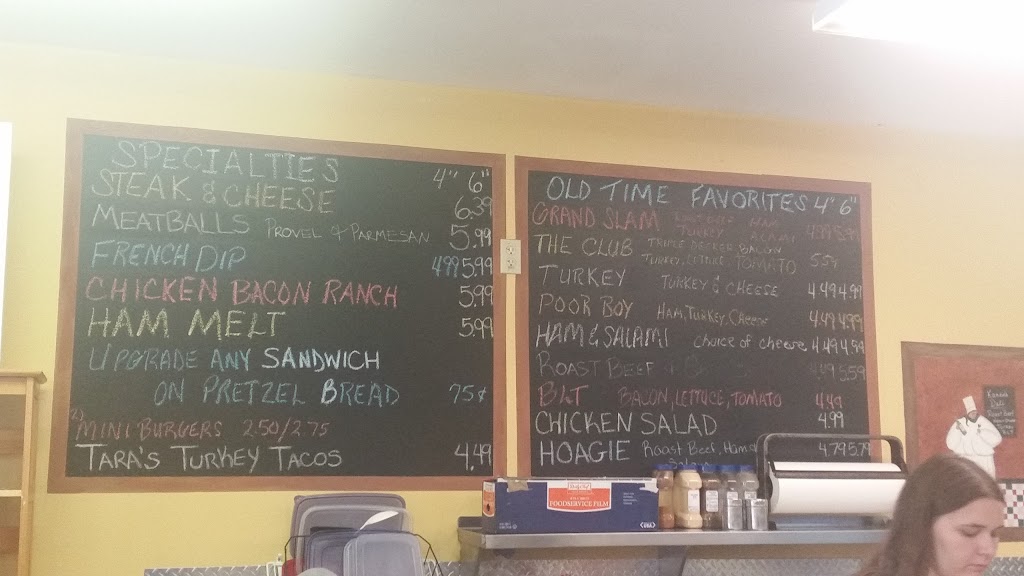 SPECIALTIES 4" 6"
STEAK & CHEESE 6.39
MEATBALLS PROVEL & PARMESAN 5.99
FRENCH DIP 499 5.99
CHICKEN BACON RANCH 5.99
HAM MELT 5.99
UPGRADE ANY SANDWICH
ON PRETZEL BREAD 75¢
2) MINI BURGERS 2.50/2.75
TARA'S TURKEY TACOS 4.49
OLD TIME FAVORITES 4" 6"
GRAND SLAM HAM
TURKEY SALAMI
THE CLUB TRIPLE DECKER BACON
TURKEY, LETTUCE TOMATO
TURKEY TURKEY & CHEESE 4.49 4.99
POOR BOY HAM, TURKEY, CHEESE 4.49 4.99
HAM & SALAMI choice of cheese 4.49 4.59
ROAST BEEF
BLT BACON, LETTUCE, TOMATO 4.49
CHICKEN SALAD 4.99
HOAGIE Roast Beef, Ham 4.79 5.79
FOODSERVICE FILM